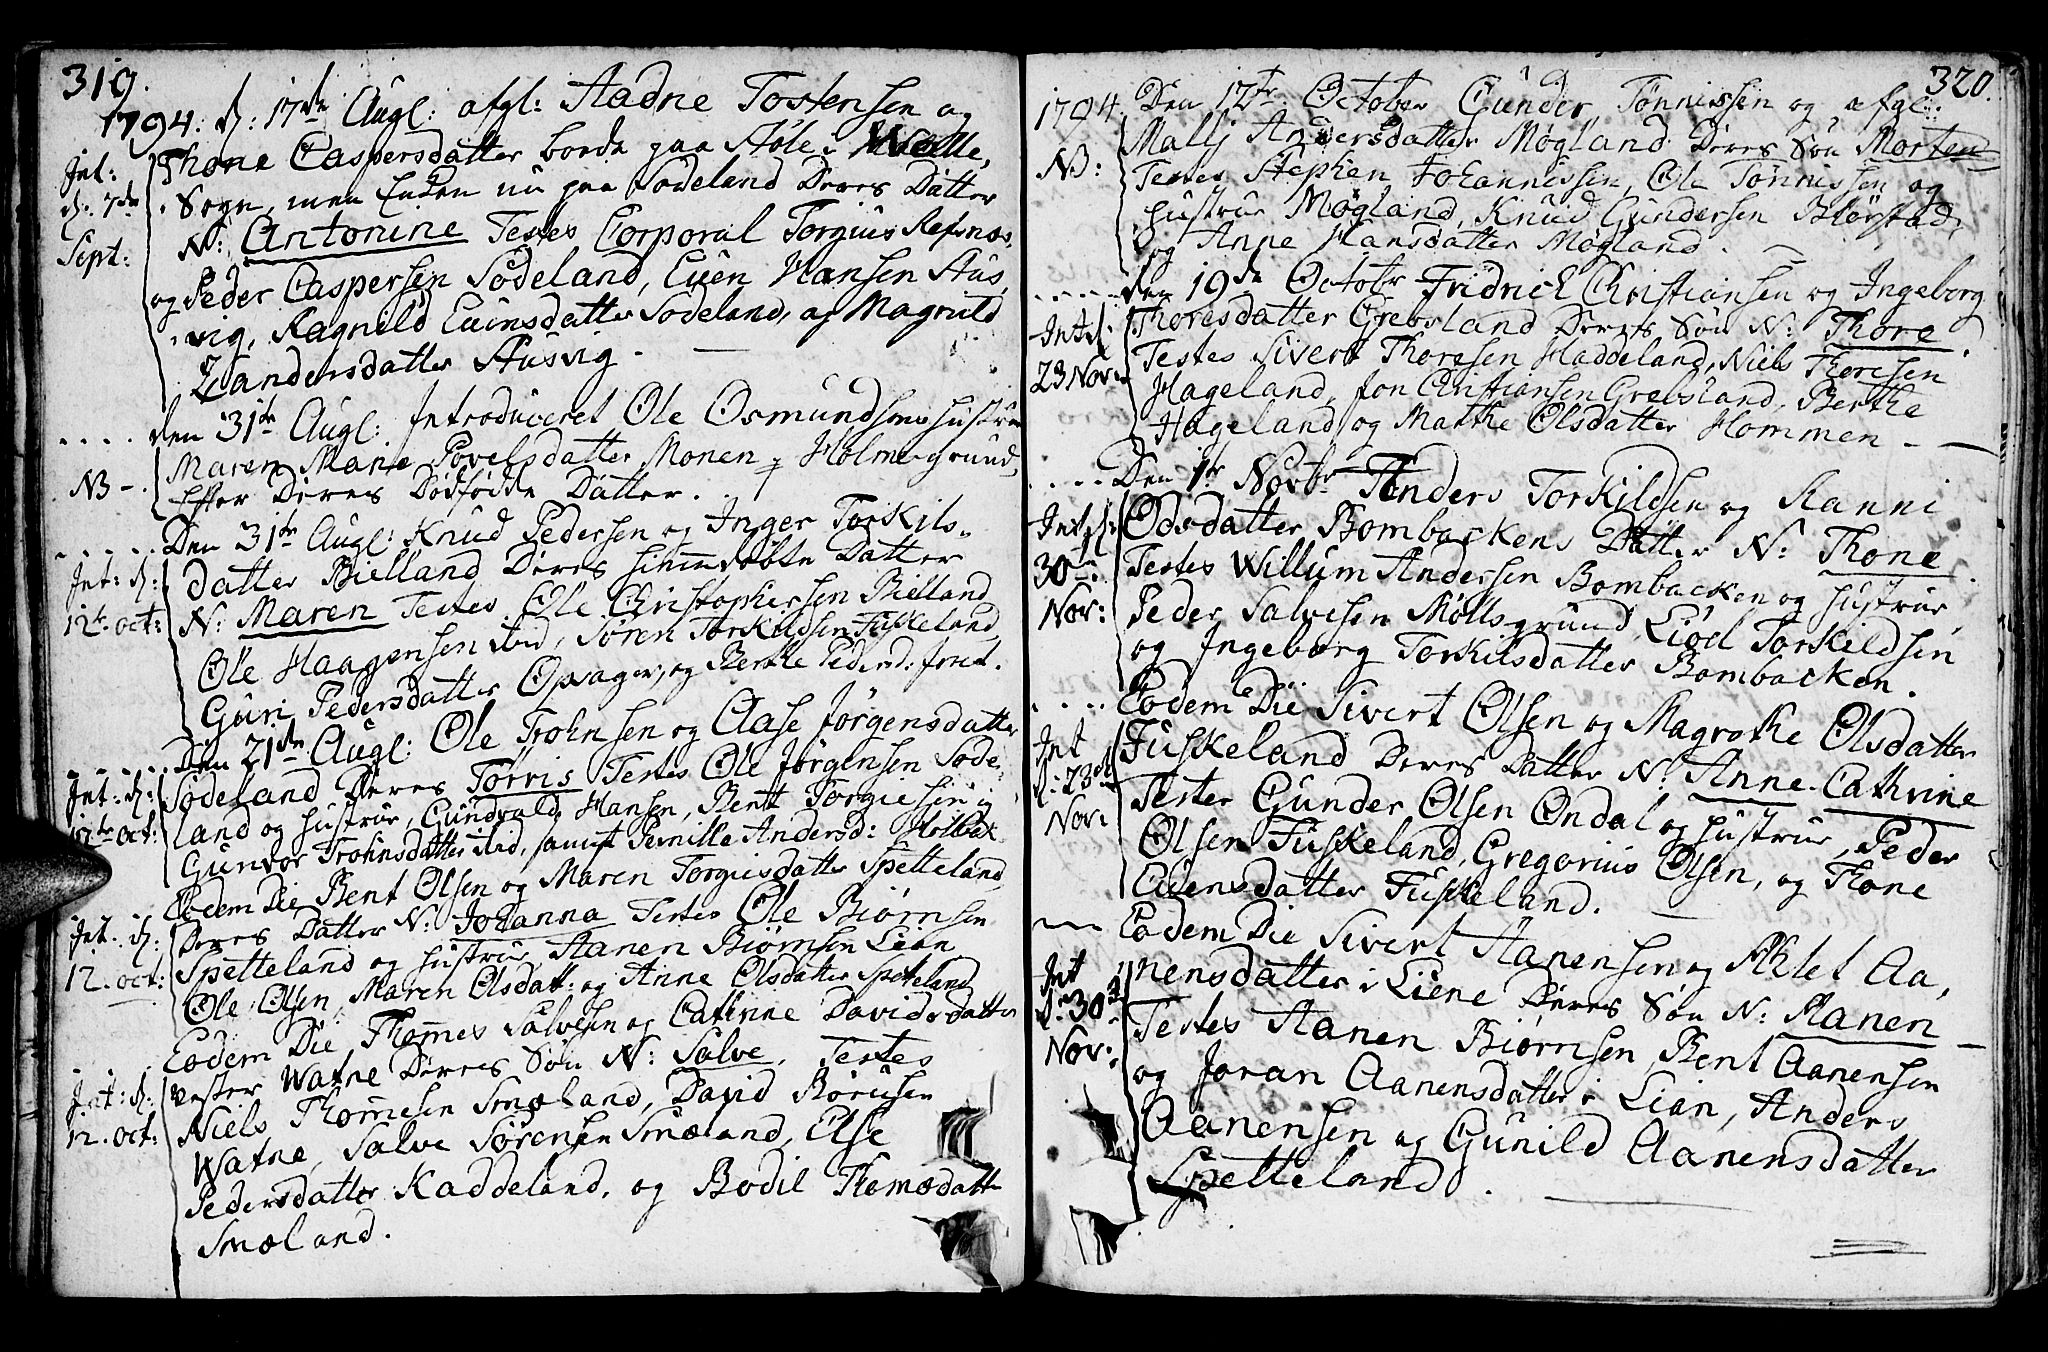 319.
1794. d: 17de Augl: afgl: Aadne Tostensen og
Int: d: 7de Sept:
Thone Caspersdatter borde paa Støle i
Sogn, men Enden nu paa Sodeland Deres Datter
N: Antonine Testes Corporal Torgius Refsnæs,
og Peder Caspersen Sodeland, Even Hansen Aus,
vig, Ragnild Evinsdatter Sodeland, og Magnild
Zandersdatter Ausvig. —
den 31te Augl: Introduceret Ole Osmundsens hustrue
NB –.
Maren Marie Povelsdatter Monen p Holmegrund,
Efter Deres Dødfødde Datter.
Den 31te Augl: Knud Pedersen og Inger Torkils-
Int: d: 12te oct:
datter Bielland Deres himmedøbte Datter
N: Maren Testes Ole Christophersen Bielland
Ole Haagensen ibid, Søren Torkildsen Fuskeland
Guri Pedersdatter Opsager, og Berthe Pedersd:
Den 21de Augl: Ole Trohnsen og Aase Jørgensdatter
Int: d: 12te oct:
Sodeland Deres Torris Testes Ole Jørgensen Sode-
land og hustrue, Gundvald Hansen, Bent Torgiesen i
Gunvor Trohnsdatter ibid, samt Pernille Andersd: Holbæk
Eodem Die Bent Olsen og Maren Torgiusdatter Spetteland,
Int. d: 12. oct:
Deres Datter N: Johanna Testes Ole Biørnsen
Spetteland og hustrue, Aanen Biørnsen Lian
Ole Olsen, Maren Olsdatt: og Anne Olsdatter Spetteland
Eodem Die Thommes Salvesen og Cathrine Davidsdatter
Int: d: 12. oct:
Vester Watne Deres Søn N: Salve, Testes
Niels Thommesen Smæland, David Børresen
Watne, Salve Sørensen Smæland, Else
Pedersdatter Kaddeland, og Bodil Thomædatter
Smæland.
320.
1794 Den 12te October Gunder Tønnissen og afgl:
NB:
Mallj Andersdatter Møgland Deres Søn Morten
Testes Stephen Johannissen, Ole Tønnissen og
hustrue Møgland, Knud Gundersen Blørstad,
og Anne Hansdatter Møgland. —
den 19de Octobr Fridrich Christiansen og Ingeborg
Int d: 23 Nov:
Thoresdatter Grebsland Deres Søn N: Thore.
Testes Sivert Thoresen Haddeland, Niels Thoresen
Hageland, Jon Christiansen Grebsland, Berthe
Hageland og Marthe Olsdatter Hommen –
Den 1te Novbr Anders Torkildsen og Aanni
Int d: 30te Nov:
Odsdatter Bombackens Datter N: Thone.
Testes Willum Andersen Bombacken og hustrue,
Peder Salvesen Møllsgrund, Liød Torkildsen
og Ingeborg Torkilsdatter Bombacken.
Eodem Die Sivert Olsen og Magrethe Olsdatter
Int d: 23de Nov:
Fuskeland Deres Datter N: Anne Cathrine
Testes Gunder Olsen Ondal og hustrue, Peder
Olsen Fuskeland, Gregorius Olsen, og Thone
Evensdatter Fuskeland. —
Eodem Die Sivert Aanensen og Ahlet Aa,
Int d: 30de Nov:
nensdatter i Liene Deres Søn N: Aanen
Testes Aanen Biørnsen, Bent Aanensen
og Joran Aanensdatter i Lian, Anders
Aanensen og Gunild Aanensdatter
Spetteland.